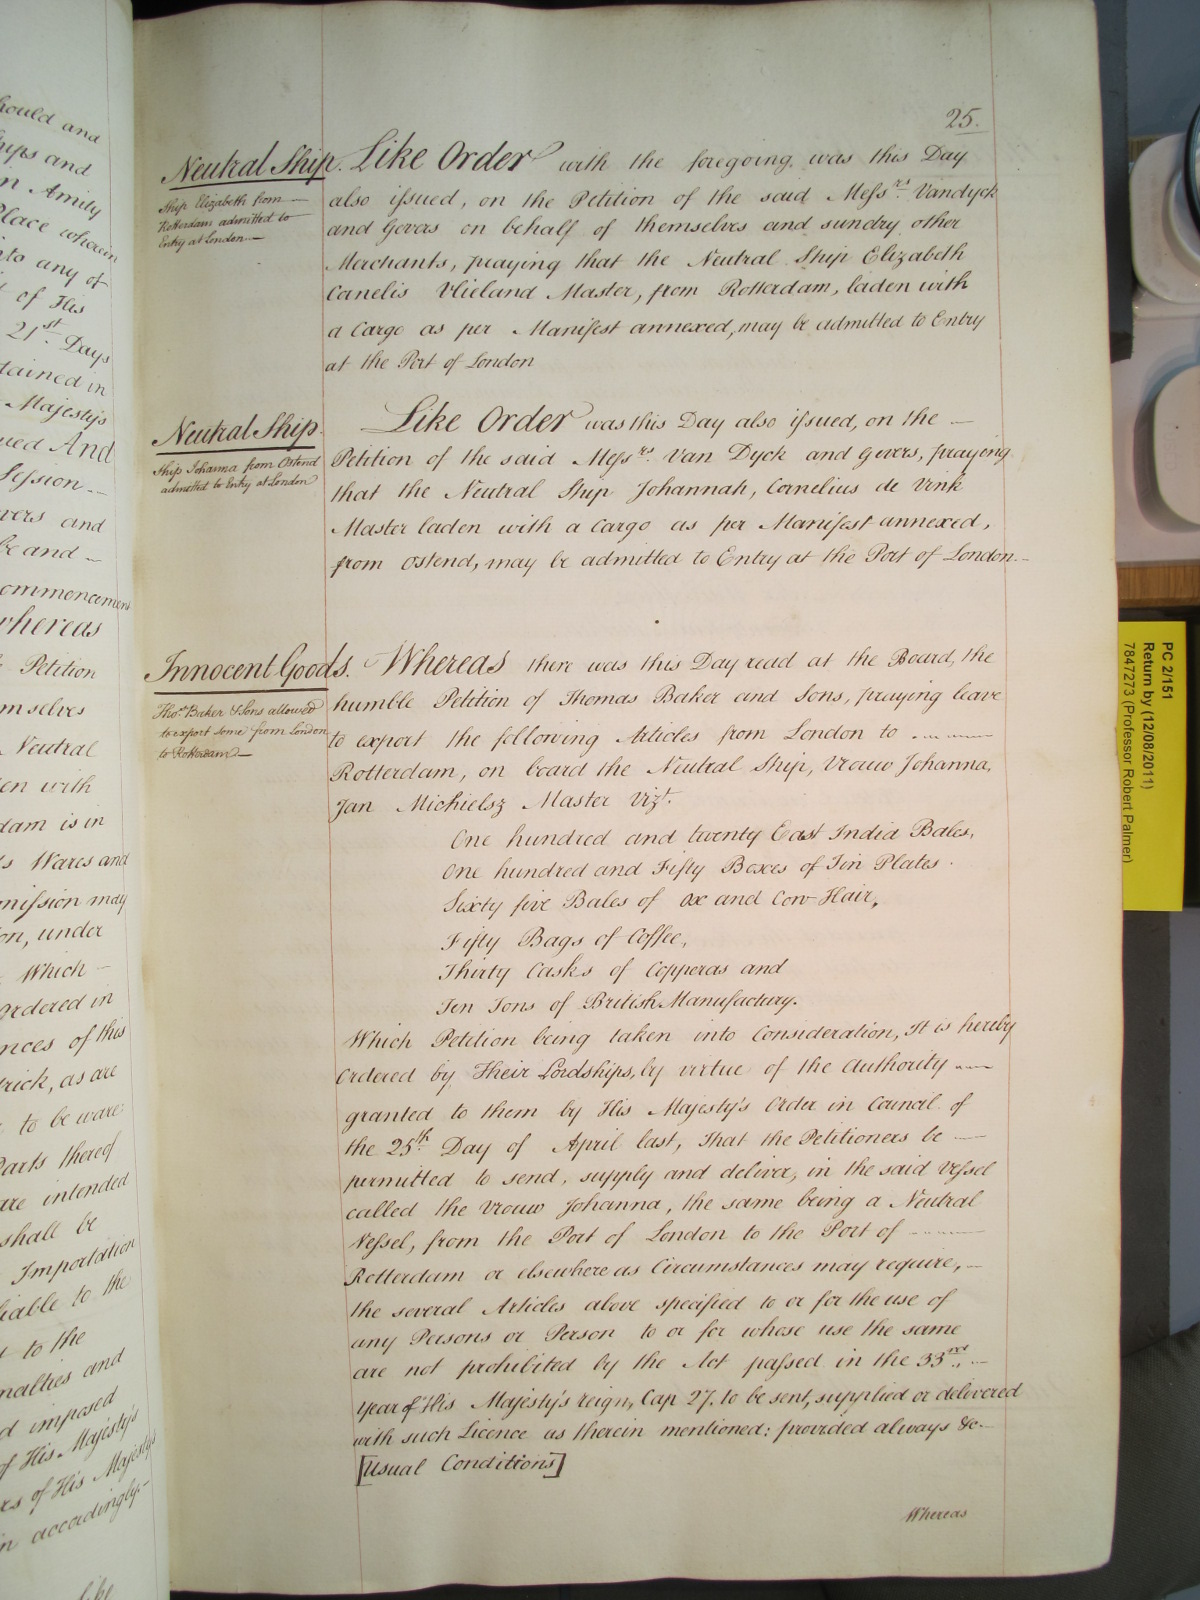 hould and
hips and
n Amity
Place wherein
nto any of
t of His
21st Days
tained in
Majesty's
ued And
Session
vers and
be and
ommencement
whereas
Petition
mselves
Neutral
en with
dam is in
s Wares and
mission may
on, under
Which
Ordered in
nces of this
rick, as are
to be ware
Parts thereof
are intended
shall be
Importation
liable to the
t to the
nalties and
d imposed
of His Majesty's
rs of His Majesty's
n accordingly
Like
25.
Neutral Ship.
Ship Elizabeth from
Rotterdam admitted to
Entry at London
Like Order with the foregoing was this Day
also issued, on the Petition of the said Messrs. Vandyck
and Gevers on behalf of themselves and sundry other
Merchants, praying that the Neutral Ship Elizabeth
Cornelis Vlieland Master, from Rotterdam, laden with
a Cargo as per Manifest annexed, may be admitted to Entry
at the Port of London
Neutral Ship.
Ship Johanna from Ostend
admitted to Entry at London
Like Order was this Day also issued, on the
Petition of the said Messrs. Van Dyck and Gevers, praying
that the Neutral Ship Johannah, Cornelius de Vink
Master laden with a Cargo as per Manifest annexed,
from Ostend, may be admitted to Entry at the Port of London.
Innocent Goods.
Thos. Baker & Sons allowed
to export some from London
to Rotterdam
Whereas there was this Day read at the Board, the
humble Petition of Thomas Baker and Sons, praying leave
to export the following Articles from London to
Rotterdam, on board the Neutral Ship, Vrouw Johanna,
Jan Michielsz Master Vizt.
One hundred and twenty East India Bales,
One hundred and Fifty Boxes of Tin Plates.
Sixty five Bales of Ox and Cow Hair,
Fifty Bags of Coffee,
Thirty Casks of Copperas and
Ten Tons of British Manufactury.
Which Petition being taken into Consideration, It is hereby
Ordered by Their Lordships, by virtue of the Authority
granted to them by His Majesty's Order in Council of
the 25th. Day of April last, That the Petitioners be
permitted to send, supply and deliver, in the said Vessel
called the Vrouw Johanna, the same being a Neutral
Vessel, from the Port of London to the Port of
Rotterdam or elsewhere as Circumstances may require,
the several Articles above specified to or for the use of
any Persons or Person to or for whose use the same
are not prohibited by the Act passed in the 33rd.
year of His Majesty's reign, Cap 27. to be sent, supplied or delivered
with such Licence as therein mentioned: provided always &c
[Usual Conditions]
Whereas
PC 2/151
Return by (12/08/2011)
7847273 (Professor Robert Palmer)